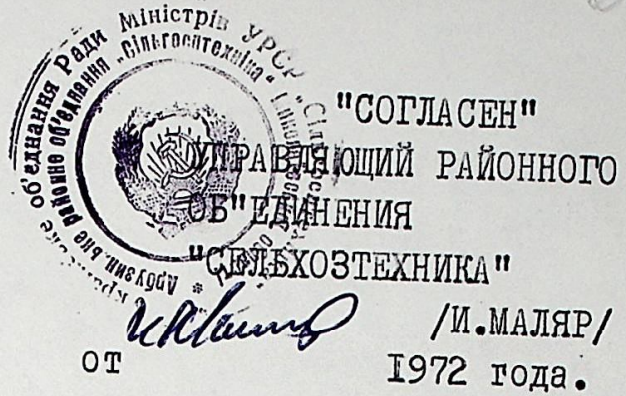 "СОГЛАСЕН"
УПРАВЛЯЮЩИЙ РАЙОННОГО
ОБ"ЕДИНЕНИЯ
"СЕЛЬХОЗТЕХНИКА"
/И.МАЛЯР/
от 1972 года.
об'єднання Ради Міністрів УРСР
районне об'єднання „Сільгосптехніка"